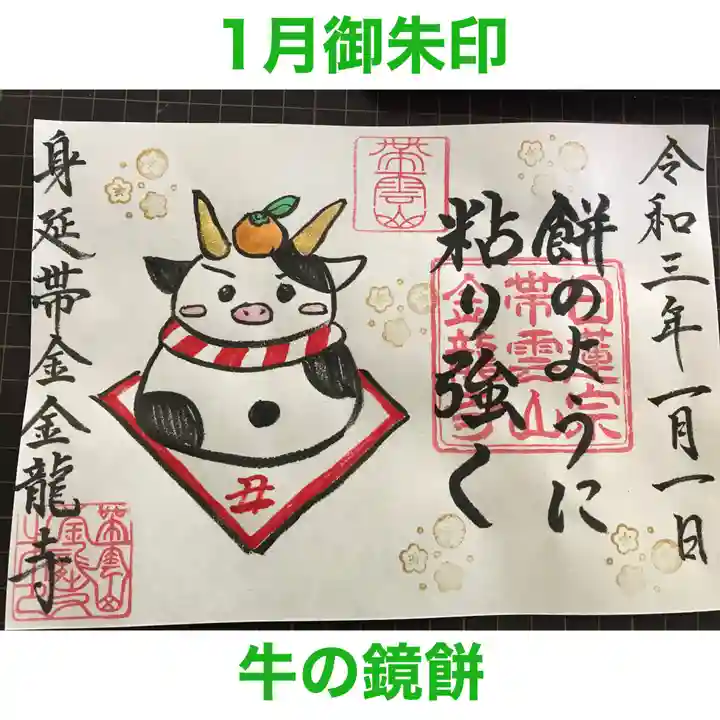 1月御朱印
令和三年一月一日
餅のように
粘り強く
日蓮宗
帯雲山
金龍寺
帯雲山
丑
身延帯金金龍寺
牛の鏡餅